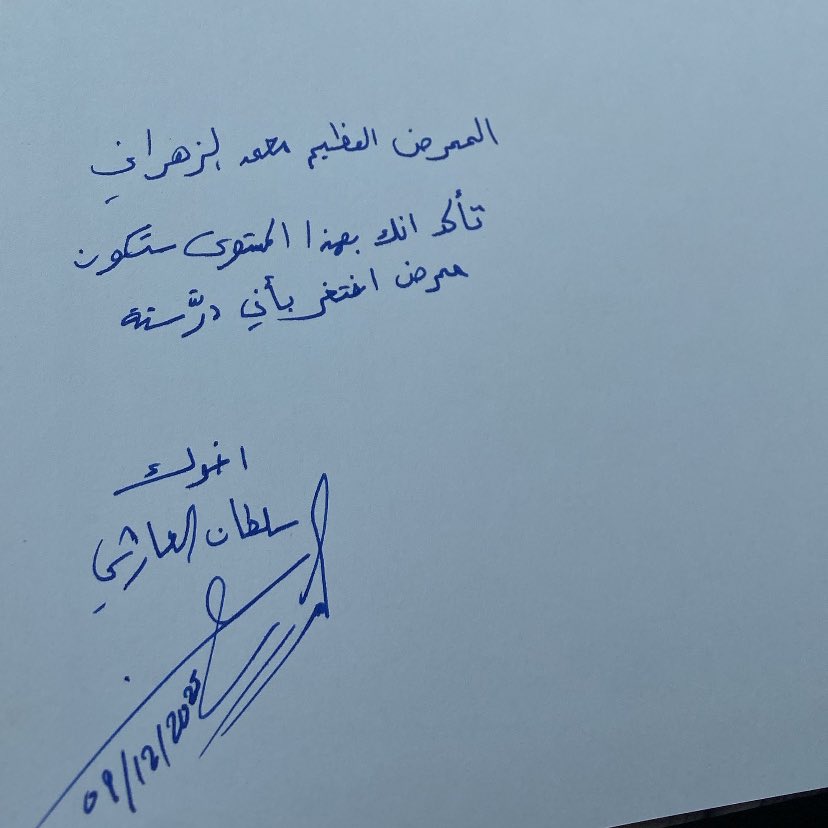 الممرض العظيم محمد الزهراني
تأكد انك بهذا المستوى ستكون
ممرض افتخر بأني درَّسته
اخوك
سلطان الحارثي
09/12/2025